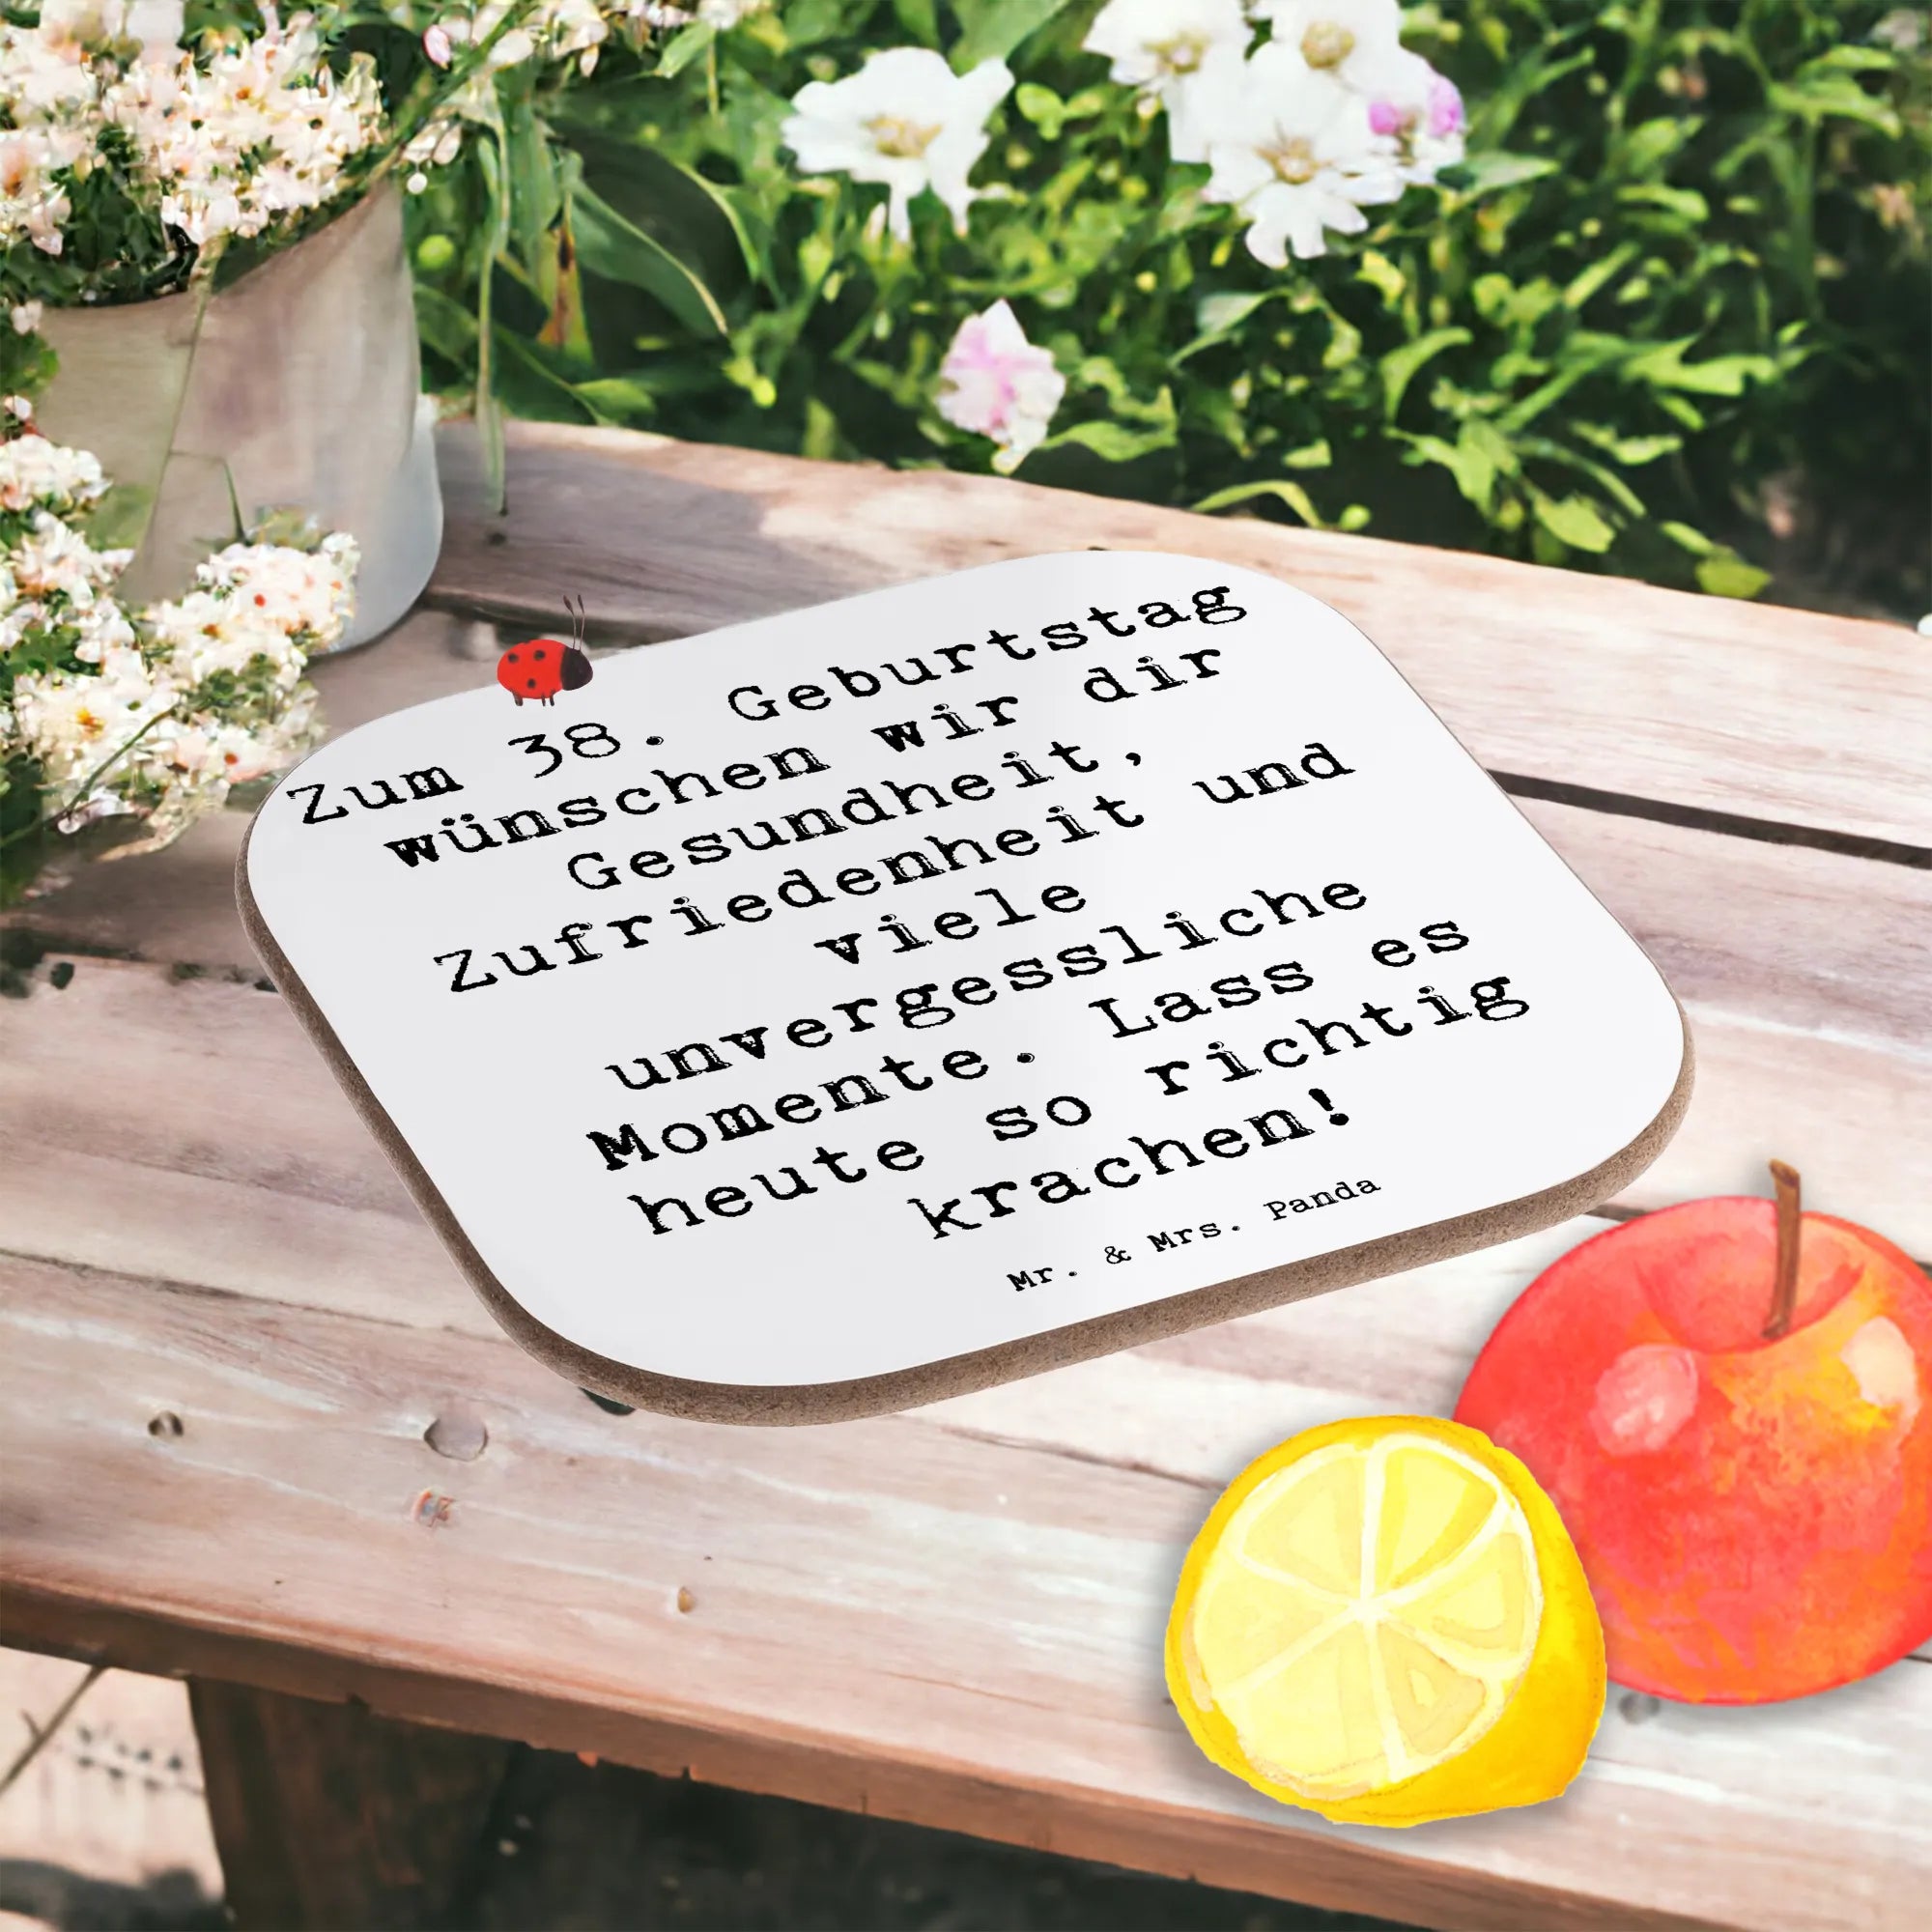 Zum 38. Geburtstag
wünschen wir dir
Gesundheit,
Zufriedenheit und
viele
unvergessliche
Momente. Lass es
heute so richtig
krachen!
Mr. & Mrs. Panda